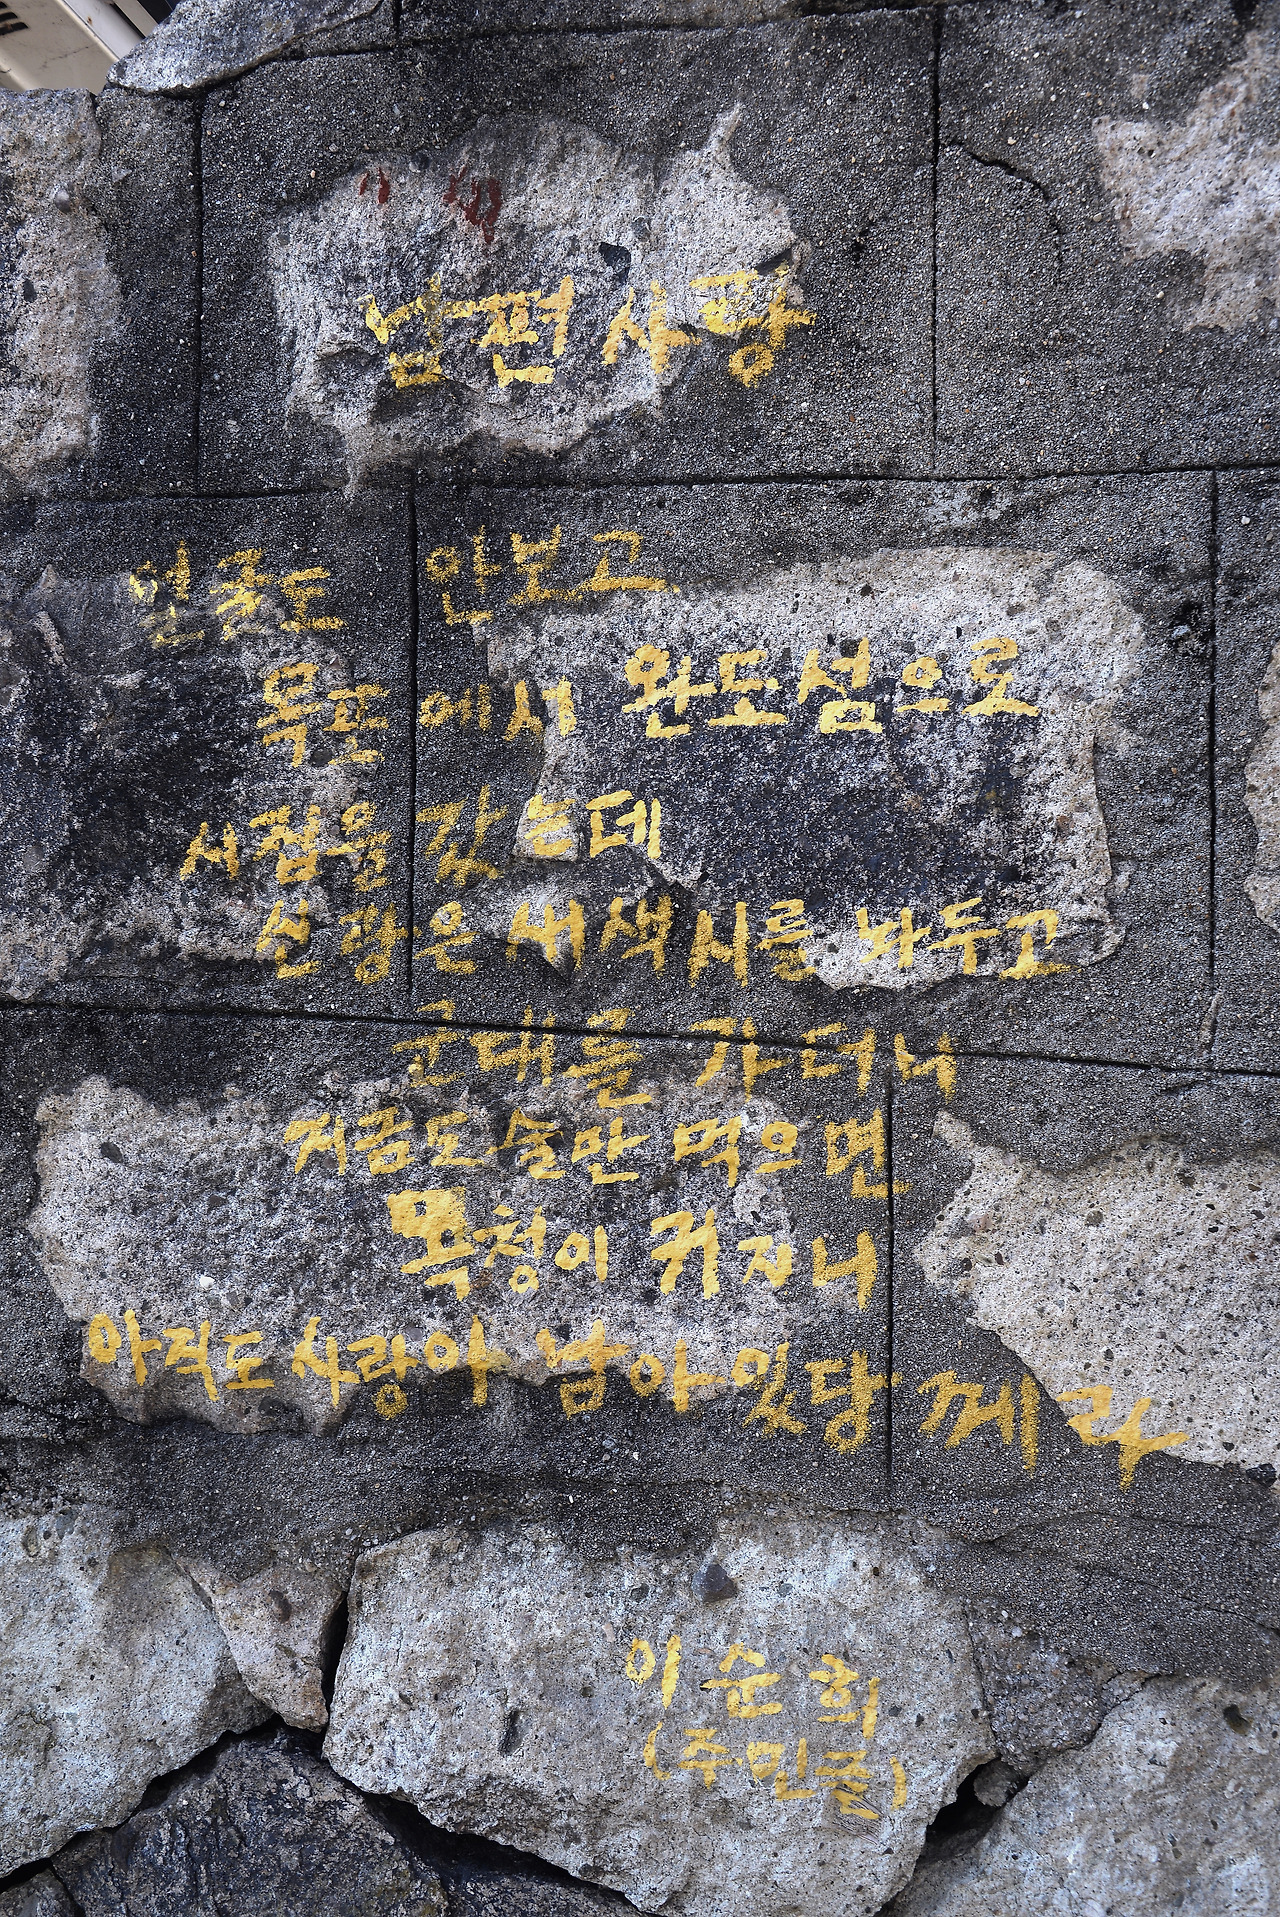 남편사랑
얼굴도 안보고
목포에서 완도섬으로
시집을 갔는데
신랑은 새색시를 놔두고
군대를 가더니
지금도 술만 먹으면
목청이 커지니
아직도 사랑이 남아있당께라
이순희
(주민)